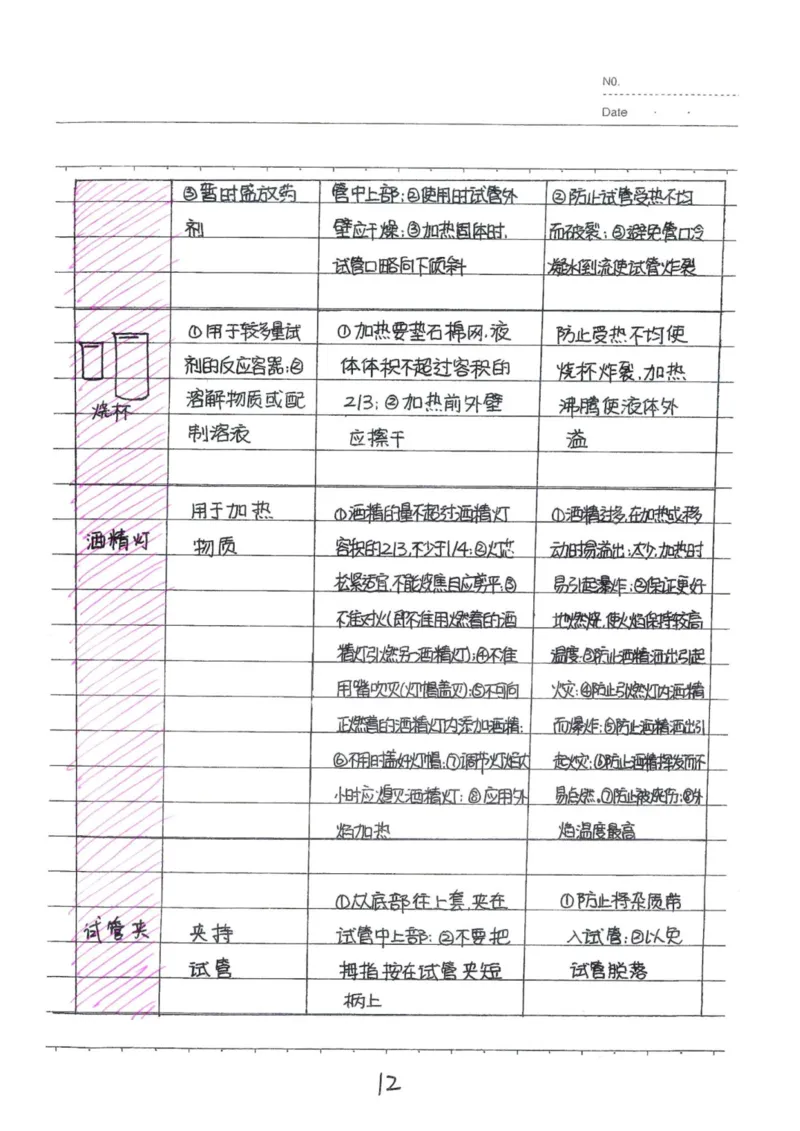 NO.
Date
③暂时盛放药
剂
管中上部;②使用时试管外
壁应干燥;③加热固体时,
试管口略向下倾斜
②防止试管受热不均
而破裂;③避免管口冷
凝水到流使试管炸裂
烧杯
①用于较多量试
剂的反应容器;②
溶解物质或配
制溶液
①加热要垫石棉网,液
体体积不超过容积的
2/3;②加热前外壁
应擦干
防止受热不均使
烧杯炸裂,加热
沸腾使液体外
溢
酒精灯
用于加热
物质
①酒精的量不超过酒精灯
容积的2/3,不少于1/4;②灯芯
松紧适宜,不能烧焦且应剪平;③
不准对火(即不准用燃着的酒
精灯引燃另一酒精灯);④不准
用嘴吹灭(灯帽盖灭);⑤不可向
正燃着的酒精灯内添加酒精;
⑥不用时盖好灯帽;⑦调节灯焰大
小时应熄灭酒精灯;⑧应用外
焰加热
①酒精过多,在加热或移
动时易溢出;太少,加热时
易引起爆炸;②保证更好
地燃烧,使火焰保持较高
温度;③防止酒精洒出引起
火灾;④防止引燃灯内酒精
而爆炸;⑤防止酒精洒出引
起火灾;⑥防止酒精挥发而不
易点燃。⑦防止被烧伤;⑧外
焰温度最高
试管夹
夹持
试管
①从底部往上套,夹在
试管中上部;②不要把
拇指按在试管夹短
柄上
①防止将杂质带
入试管;②以免
试管脱落
12